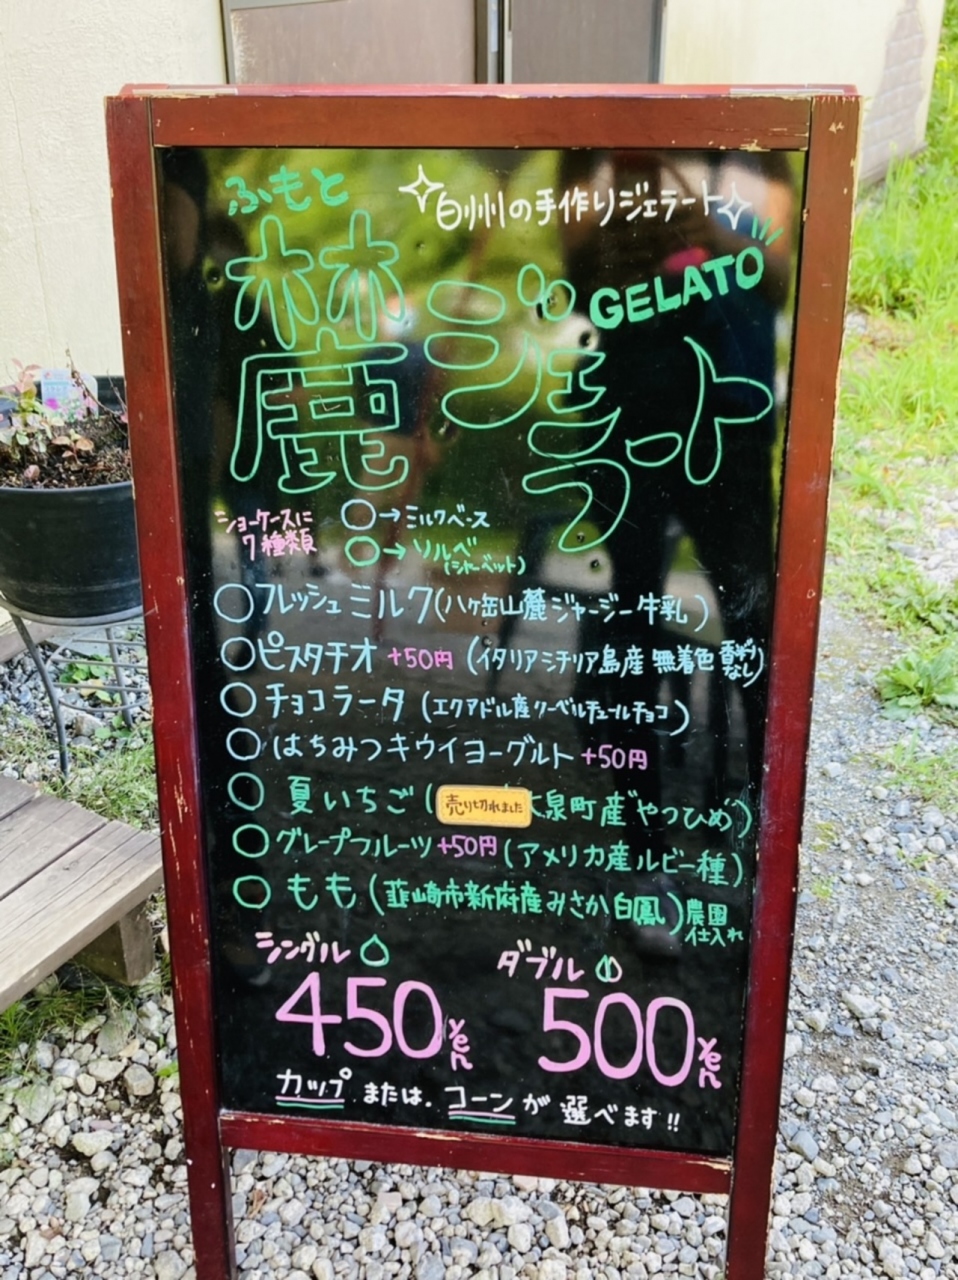 ふもと
✧白州の手作りジェラート✧
麓ジェラート
GELATO
ショーケースに
7種類
○→ミルクベース
○→ソルベ
(シャーベット)
○フレッシュミルク(八ヶ岳山麓ジャージー牛乳)
○ピスタチオ +50円 (イタリアシチリア島産 無着色 香料なし)
○チョコラータ (エクアドル産クーベルチュールチョコ)
○はちみつキウイヨーグルト +50円
○夏いちご ( 売り切れました 泉町産"やつひめ")
○グレープフルーツ+50円 (アメリカ産ルビー種)
○もも (韮崎市新府産みさか白鳳) 農園仕入れ
シングル ダブル
450yen 500yen
カップ または、コーンが 選べます!!